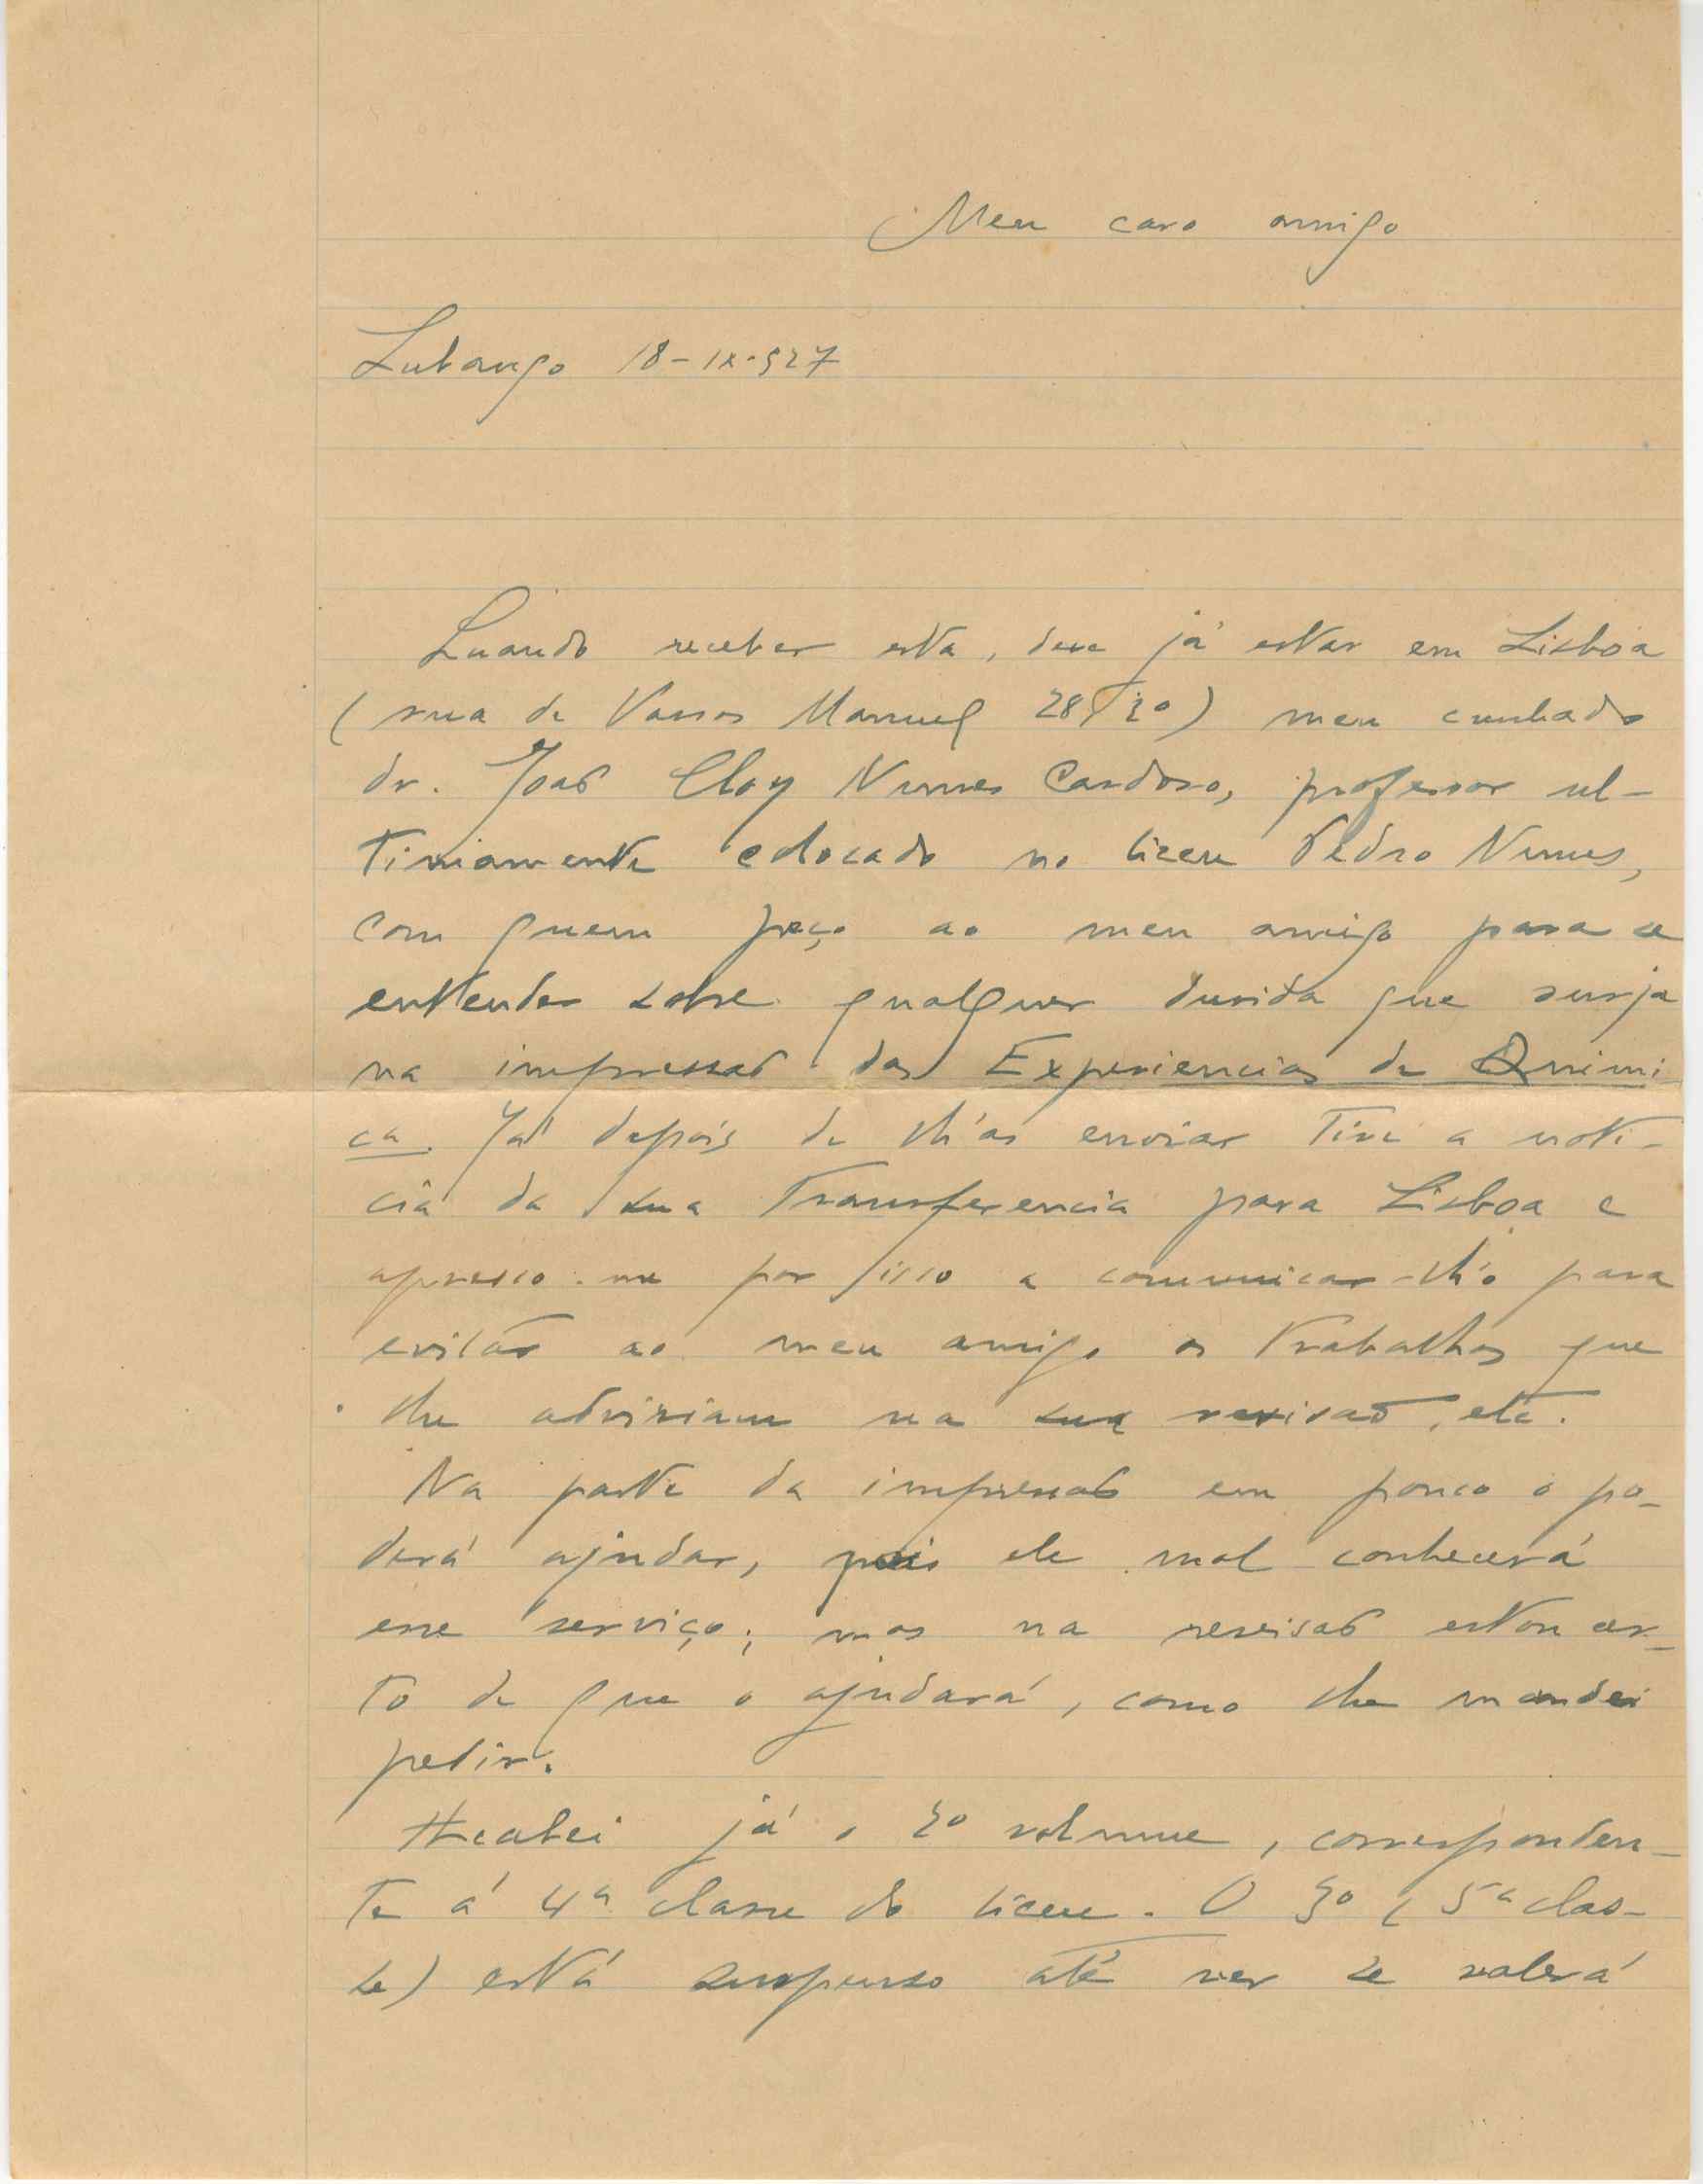 Meu caro amigo
Lubango 18-IX-927
Quando receber esta, deve já estar em Lisboa
(rua de Passos Manuel 28, 2º) meu cunhado
dr. João Eloy Nunes Cardoso, professor ul-
timamente colocado no liceu Pedro Nunes,
com quem peço ao meu amigo para se
entender sobre qualquer duvida que surja
na impressão das Experiencias de Quimi
ca. Já depois de lh'as enviar tive a noti-
cia da sua transferencia para Lisboa e
apresso-me por isso a comunicar-lh'o para
evitar ao meu amigo os trabalhos que
lhe adviriam na sua revisão, etc.
Na parte da impressão em pouco o po-
derá ajudar, pois ele mal conhecerá
esse serviço; mas na revisão estou cer-
to de que o ajudará, como lhe mandei
pedir.
Acabei já o 2º volume, corresponden-
te á 4ª classe do liceu. O 3º (5ª clas-
se) está suspenso até ver se valerá